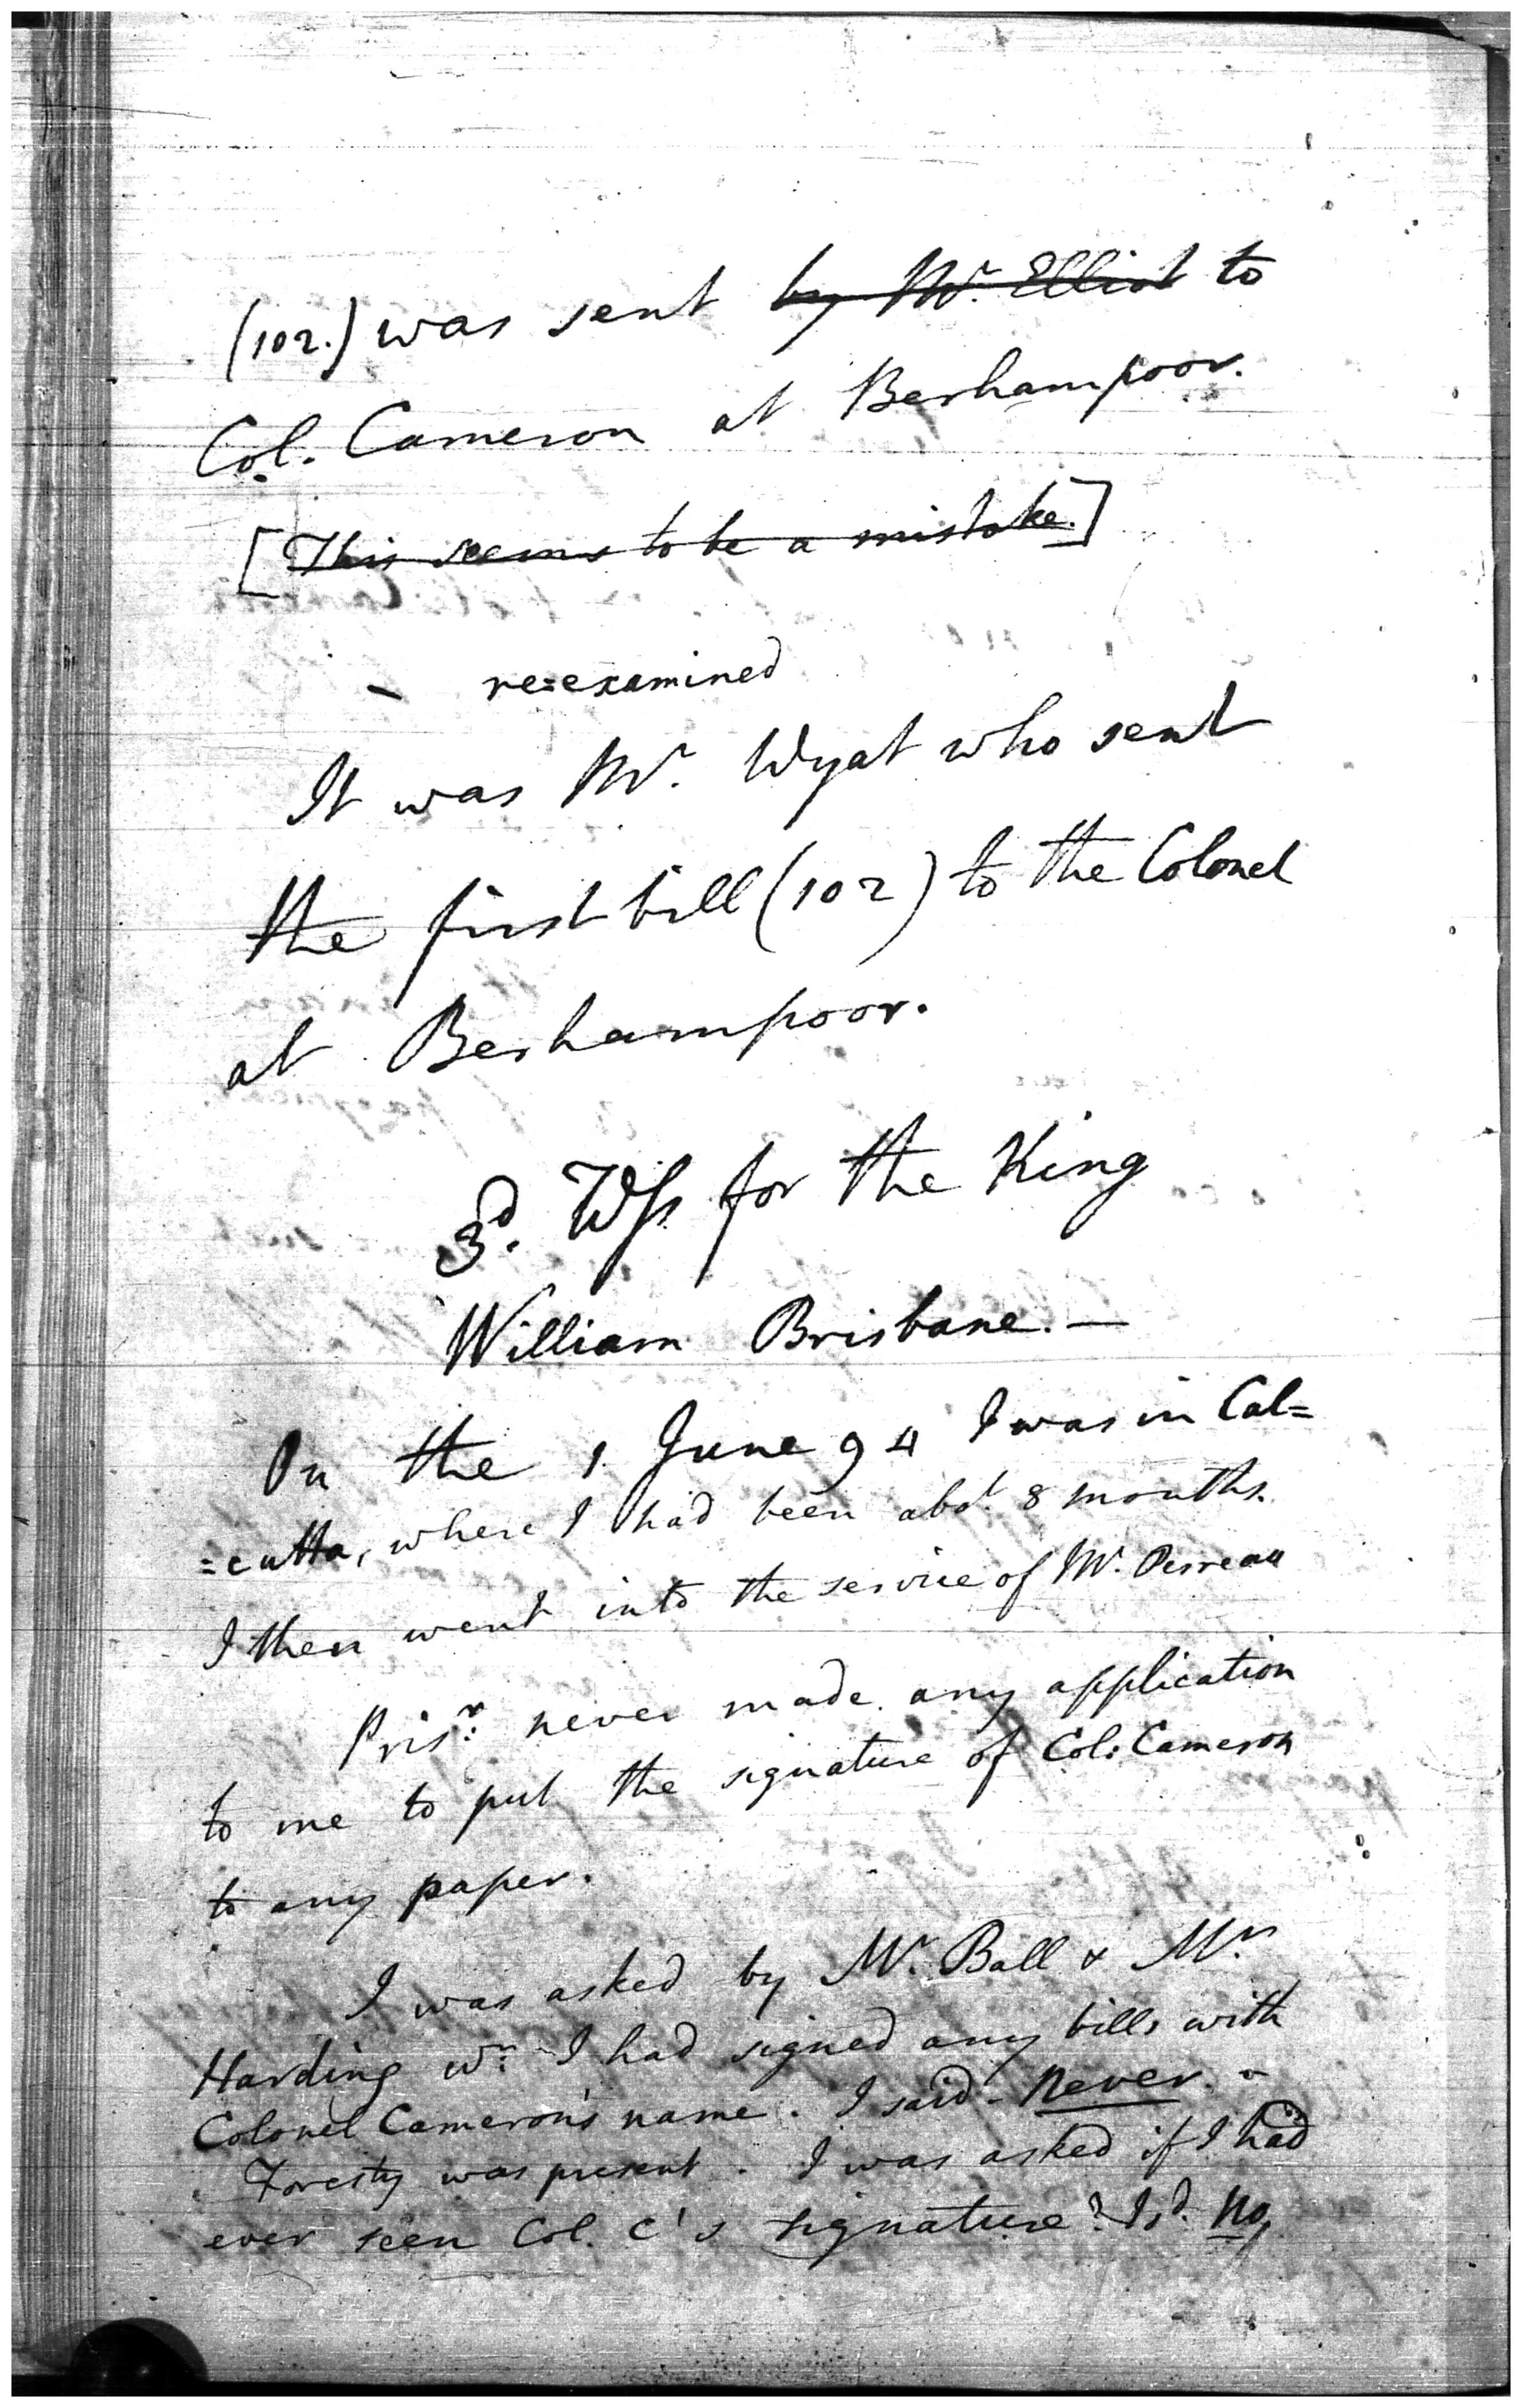 (102.) was sent by Mr. Elliot to
Col. Cameron at Berhampoor.
[This seems to be a mistake.]
- re=examined
It was Mr. Wyat who sent
the first bill (102) to the Colonel
at Berhampoor.
3d. Wss for the King
William Brisbane. —
On the 1 June 94 I was in Cal=
=cutta, where I had been abot. 8 months.
I then went into the service of Mr. Perreau
Prisr: never made any application
to me to put the signature of Col: Cameron
to any paper.
I was asked by Mr. Ball & Mr
Harding wr: I had signed any bills with
Colonel Cameron's name. I said - Never. -
Foresty was present. I was asked if I had
ever seen Col. C's signature? I sd. No,